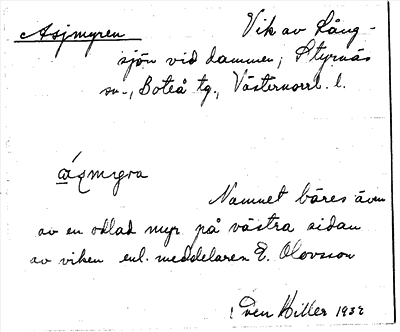 Asjmyren Vik av Lång-
sjön vid dammen, Styrnäs
sn., Boteå tg., Västernorrl. l.
Namnet bäres även
av en odlad myr på västra sidan
av viken enl. meddelaren E. Olovsson
Sven Hiller 1932